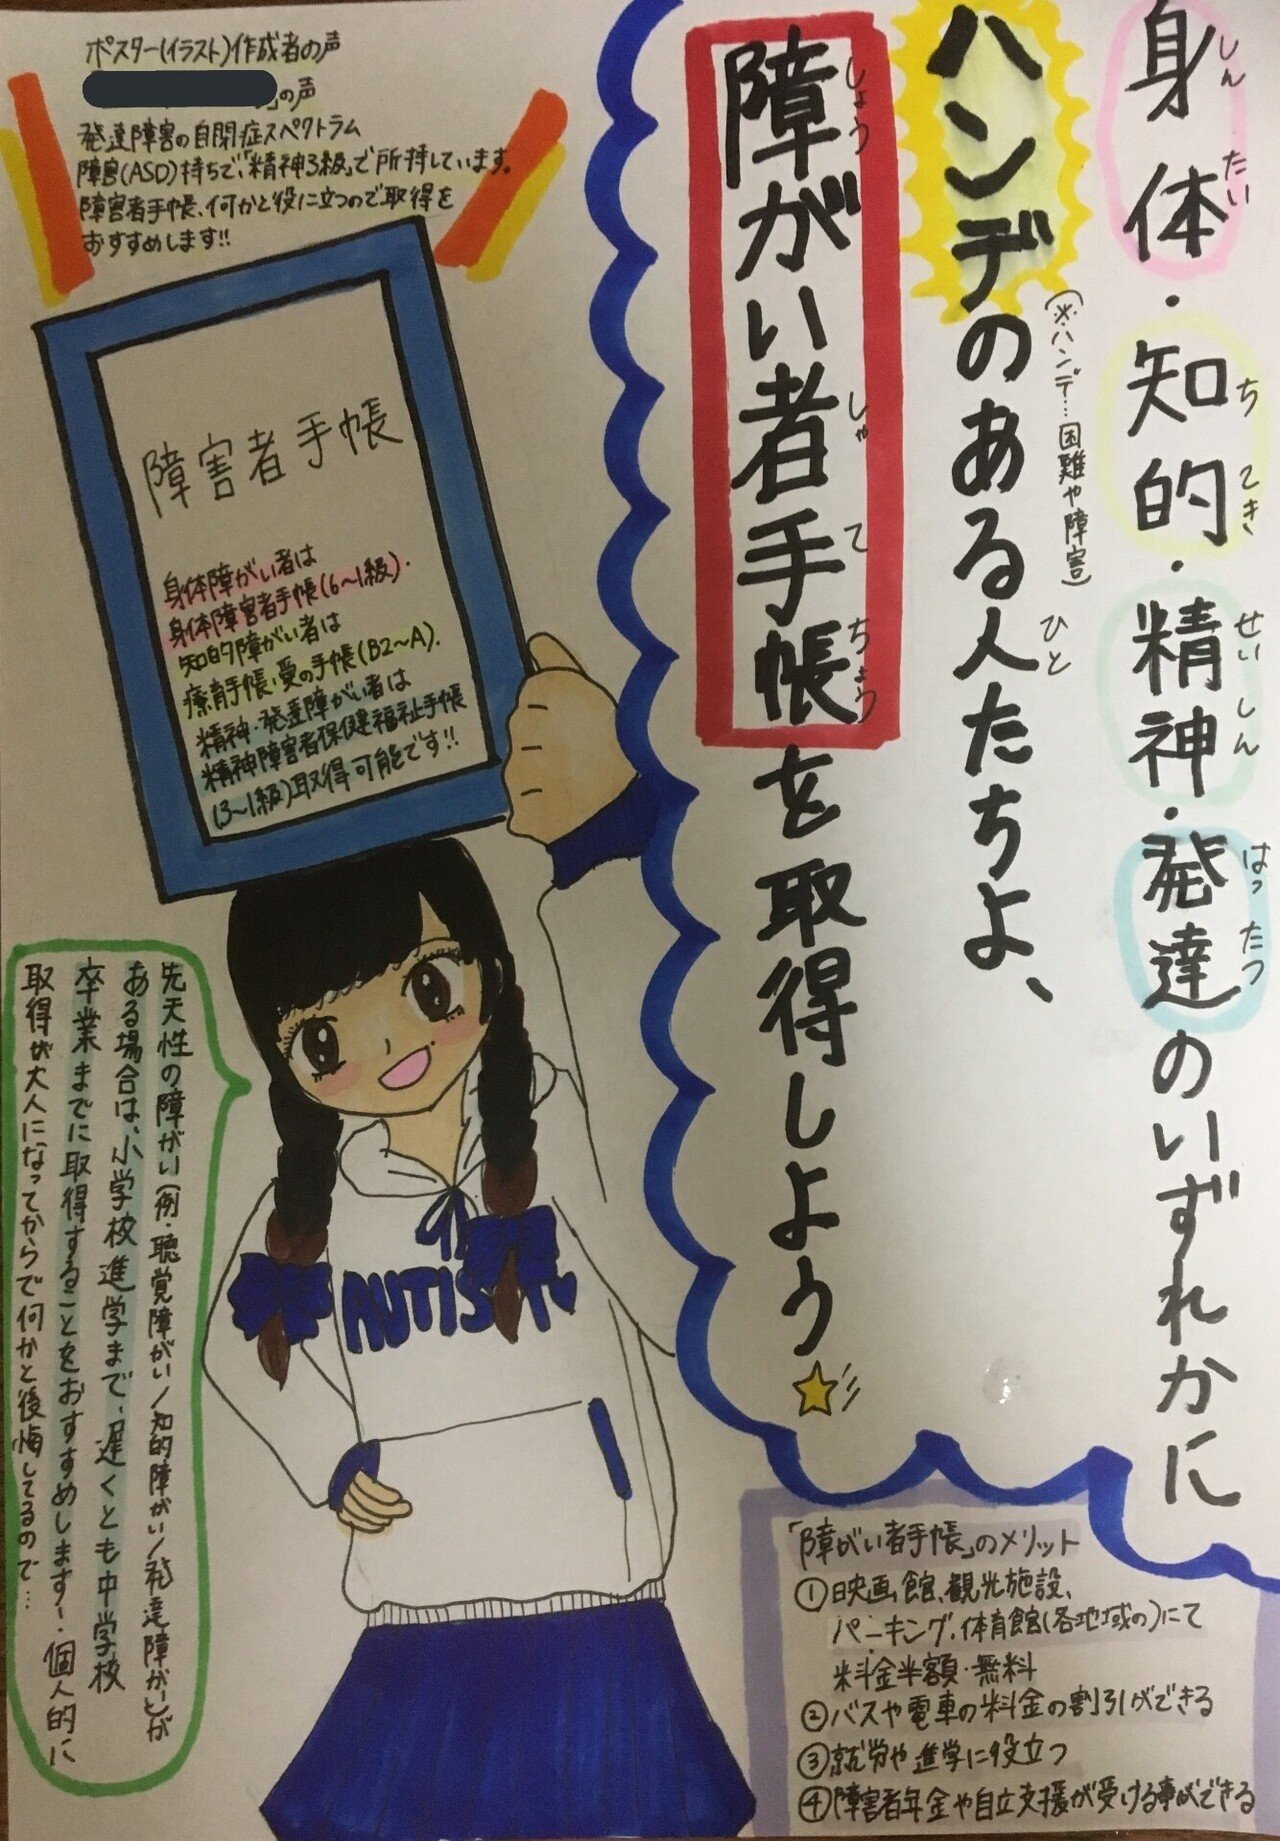 身体・知的・精神・発達のいずれかに
しん たい ち てき せい しん はっ たつ
ハンデのある人たちよ、
ひと
(※ハンデ…困難や障害)
障がい者手帳を取得しよう
しょう しゃ て ちょう
ポスター(イラスト)作成者の声
」の声
発達障害の自閉症スペクトラム
障害(ASD)持ちで、「精神3級」で所持しています。
障害者手帳、何かと役に立つので取得を
おすすめします!!
障害者手帳
身体障がい者は
身体障害者手帳(6〜1級)・
知的障がい者は
療育手帳、愛の手帳(B2〜A)、
精神・発達障がい者は
精神障害者保健福祉手帳
(3〜1級)取得可能です!!
先天性の障がい(例・聴覚障がい/知的障がい/発達障がい)が
ある場合は、小学校進学まで、遅くとも中学校
卒業までに取得することをおすすめします…個人的に
取得が大人になってからで何かと後悔してるので…
AUTIS
「障がい者手帳」のメリット
①映画館、観光施設、
パーキング、体育館(各地域の)にて
料金半額・無料
②バスや電車の料金の割引ができる
③就労や進学に役立つ
④障害者年金や自立支援が受ける事ができる